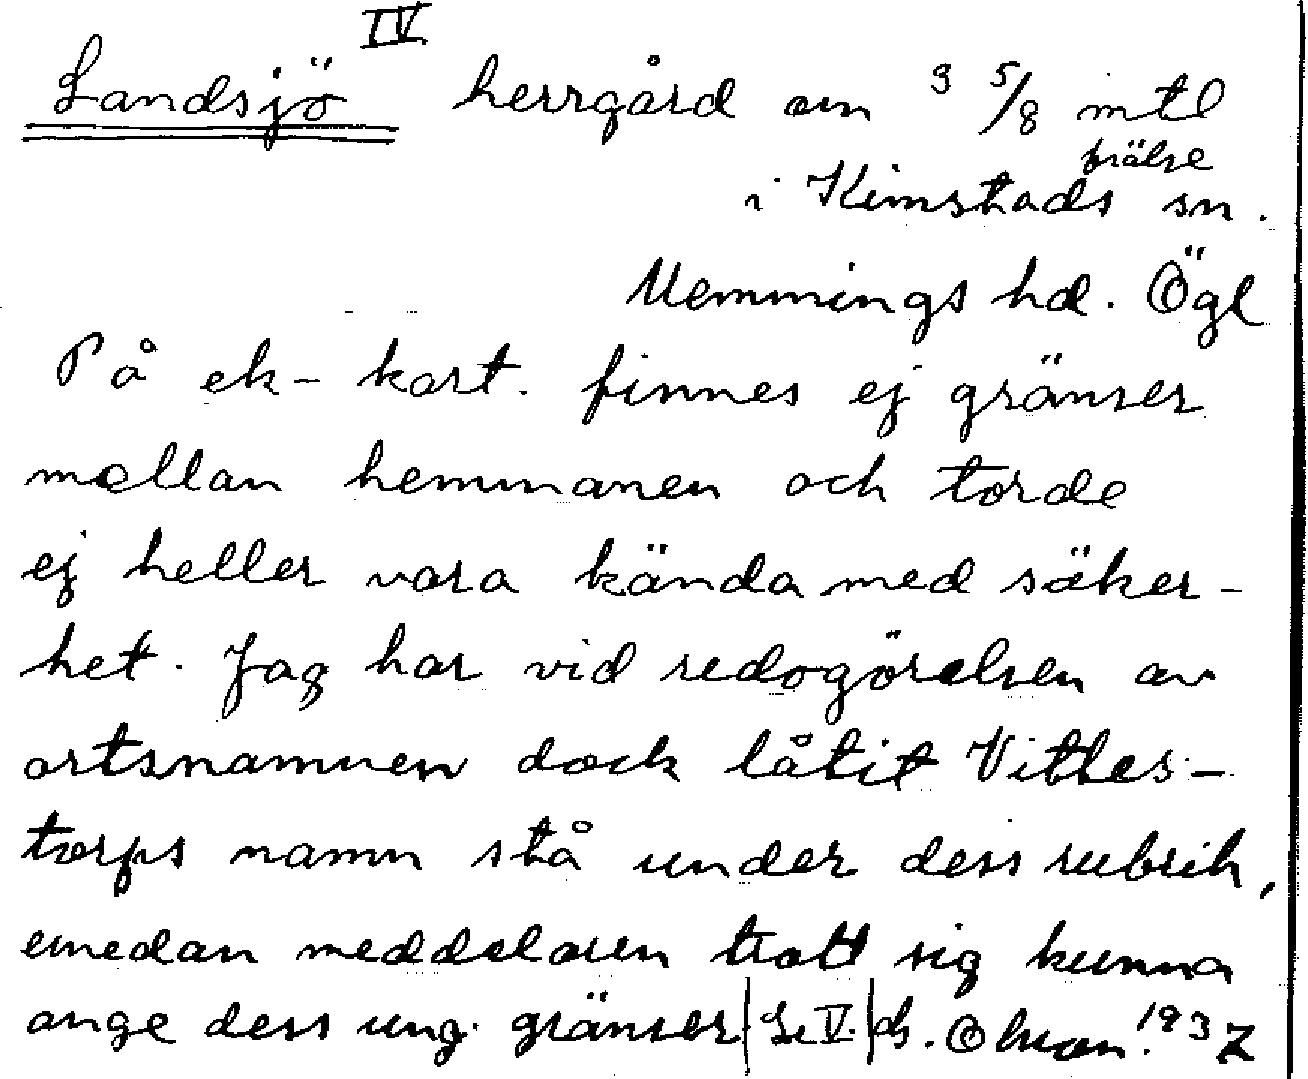 IV
Landsjö herrgård om 3 5/8 mtl
frälse
i Kimstads sn.
Memmings hd. Ögl
På ek-kart. finnes ej gränser
mellan hemmanen och torde
ej heller vara kända med säker-
het. Jag har vid redogörelsen av
ortsnamnen dock låtit Vittles-
torps namn stå under dess rubrik,
emedan meddelaren trott sig kunna
ange dess ung. gränser |Se V.| 1937